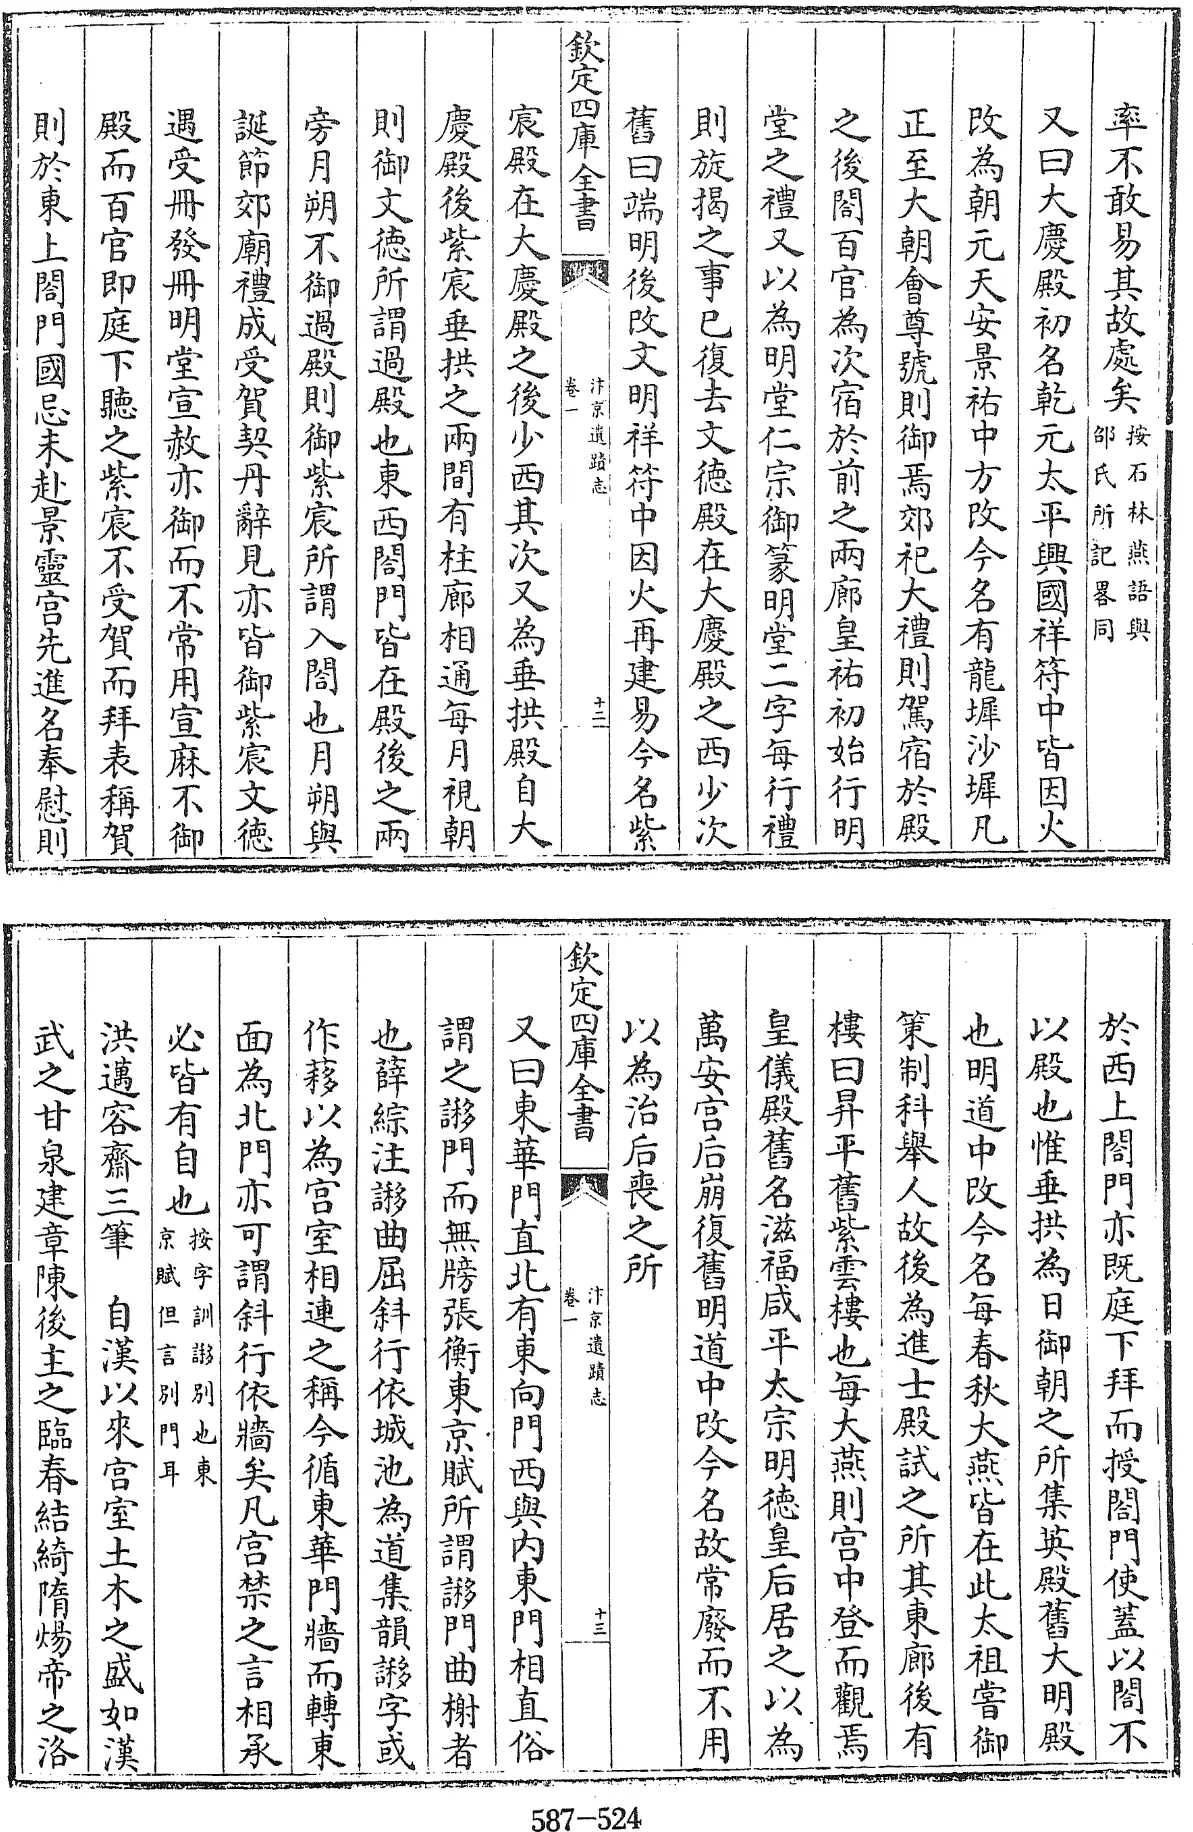 率不敢易其故處矣按石林燕語與
邵氏所記畧同
又曰大慶殿初名乾元太平興國祥符中皆因火
改為朝元天安景祐中方改今名有龍墀沙墀凡
正至大朝會尊號則御焉郊祀大禮則駕宿於殿
之後閤百官為次宿於前之兩廊皇祐初始行明
堂之禮又以為明堂仁宗御篆明堂二字每行禮
則旋揭之事已復去文德殿在大慶殿之西少次
舊曰端明後改文明祥符中因火再建易今名紫
欽定四庫全書
汴京遺蹟志
卷一
十二
宸殿在大慶殿之後少西其次又為垂拱殿自大
慶殿後紫宸垂拱之兩間有柱廊相通每月視朝
則御文德所謂過殿也東西閤門皆在殿後之兩
旁月朔不御過殿則御紫宸所謂入閤也月朔與
誕節郊廟禮成受賀契丹辭見亦皆御紫宸文德
遇受冊發冊明堂宣赦亦御而不常用宣麻不御
殿而百官即庭下聽之紫宸不受賀而拜表稱賀
則於東上閤門國忌未赴景靈宫先進名奉慰則
於西上閤門亦既庭下拜而授閤門使蓋以閤不
以殿也惟垂拱為日御朝之所集英殿舊大明殿
也明道中改今名每春秋大燕皆在此太祖嘗御
策制科舉人故後為進士殿試之所其東廊後有
樓曰昇平舊紫雲樓也每大燕則宫中登而觀焉
皇儀殿舊名滋福咸平太宗明德皇后居之以為
萬安宫后崩復舊明道中改今名故常廢而不用
以為治后喪之所
欽定四庫全書
汴京遺蹟志
卷一
十三
又曰東華門直北有東向門西與内東門相直俗
謂之謻門而無牓張衡東京賦所謂謻門曲榭者
也薛綜注謻曲屈斜行依城池為道集韻謻字或
作簃以為宫室相連之稱今循東華門牆而轉東
面為北門亦可謂斜行依牆矣凡宫禁之言相承
必皆有自也按字訓謻别也東
京賦但言别門耳
洪邁容齋三筆　自漢以來宫室土木之盛如漢
武之甘泉建章陳後主之臨春結綺隋煬帝之洛
587-524